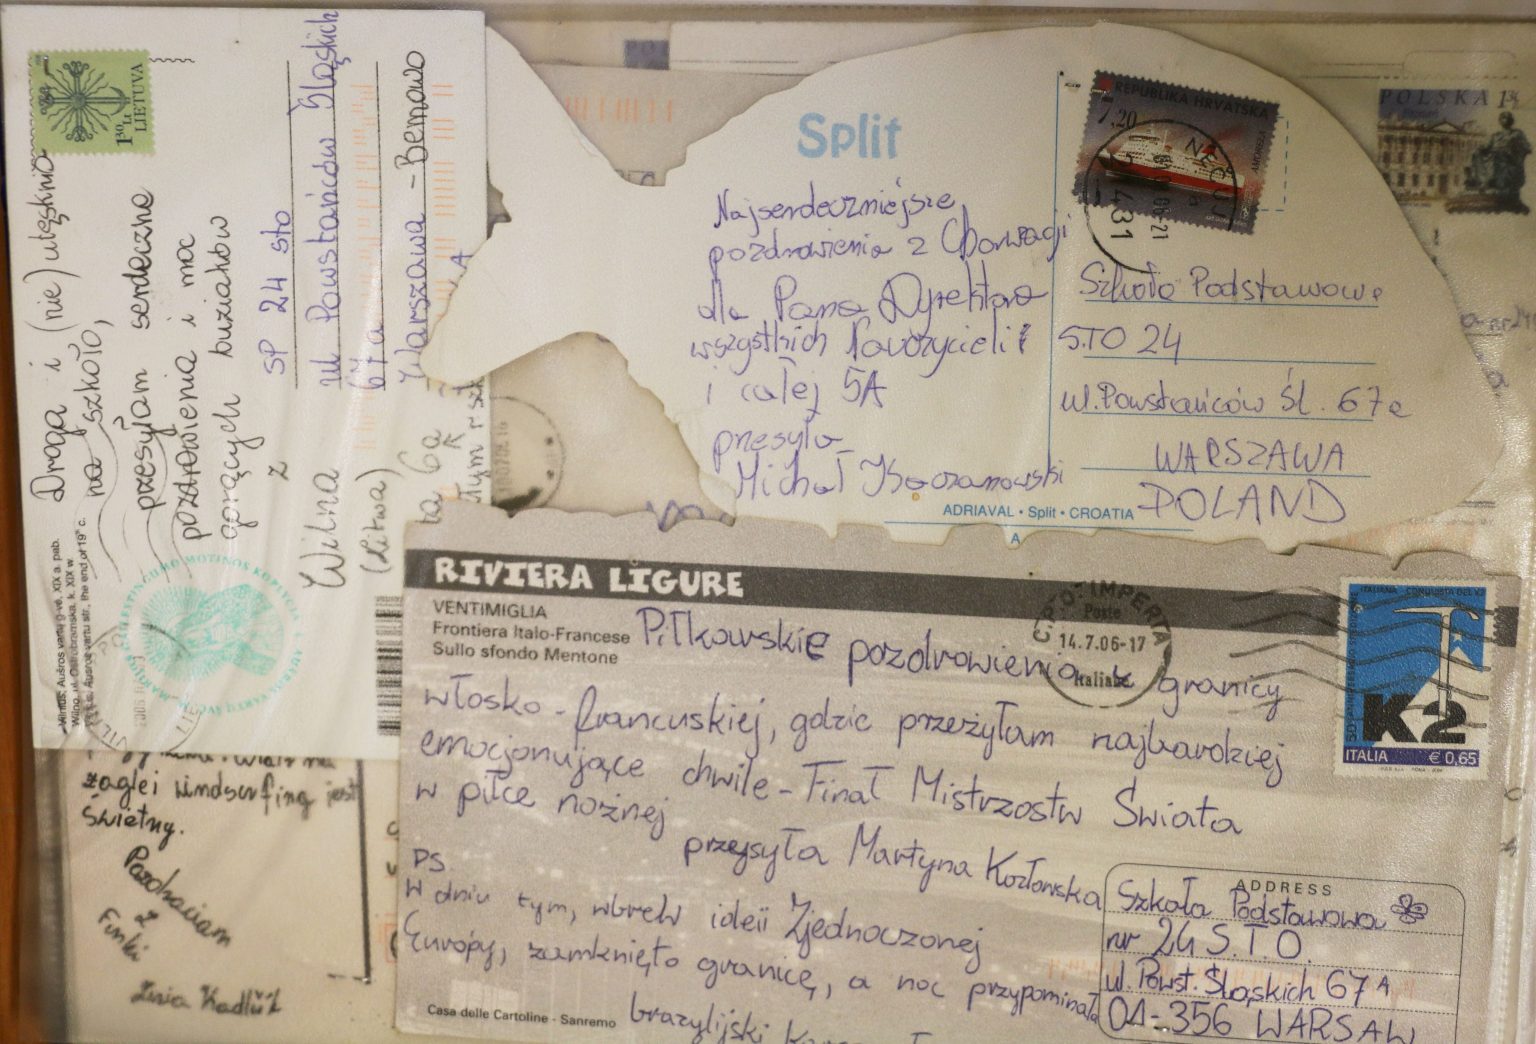 Droga i (nie) utęskniona
szkoło,
przesyłam serdeczne
pozdrowienia i moc
gorących buziaków
z
Wilna
(Litwa)
LIETUVA
SP 24 sto
ul Powstańców Śląskich
67a
Warszawa - Bemowo
Vilnius, Aušros vartų g-vė, XIX a. pab.
Wilno, ul. Ostrobramska, k. XIX w.
Vilnius, Aušros vartų str., the end of 19th c.
Split
Najserdeczniejsze
pozdrowienia z Chorwacji
dla Pana Dyrektora
wszystkich Nauczycieli
i całej 5A
przesyła
Michał Koczanowski
REPUBLIKA HRVATSKA
7,20
Szkoła Podstawowa
STO 24
ul. Powstańców Śl. 67a
WARSZAWA
POLAND
ADRIAVAL • Split • CROATIA
POLSKA
RIVIERA LIGURE
VENTIMIGLIA
Frontiera Italo-Francese
Sullo sfondo Mentone
C.P.O. IMPERIA
Poste
14.7.06-17
Italiane
K2
ITALIA € 0,65
Piłkowskie pozdrowienia z granicy
włosko-francuskiej, gdzie przeżyłam najbardziej
emocjonujące chwile - Finał Mistrzostw Świata
w piłce nożnej
przesyła Martyna Kozłowska
PS.
W dniu tym, wbrew ideii Zjednoczonej
Europy, zamknięto granicę, a noc przypominała
brazylijski
Casa delle Cartoline - Sanremo
ADDRESS
Szkoła Podstawowa
nr 24 S.T.O.
ul. Powst. Śląskich 67A
01-356 WARSAW
żaglei windsurfing jest
świetny.
Pozdrawiam
z
Finki